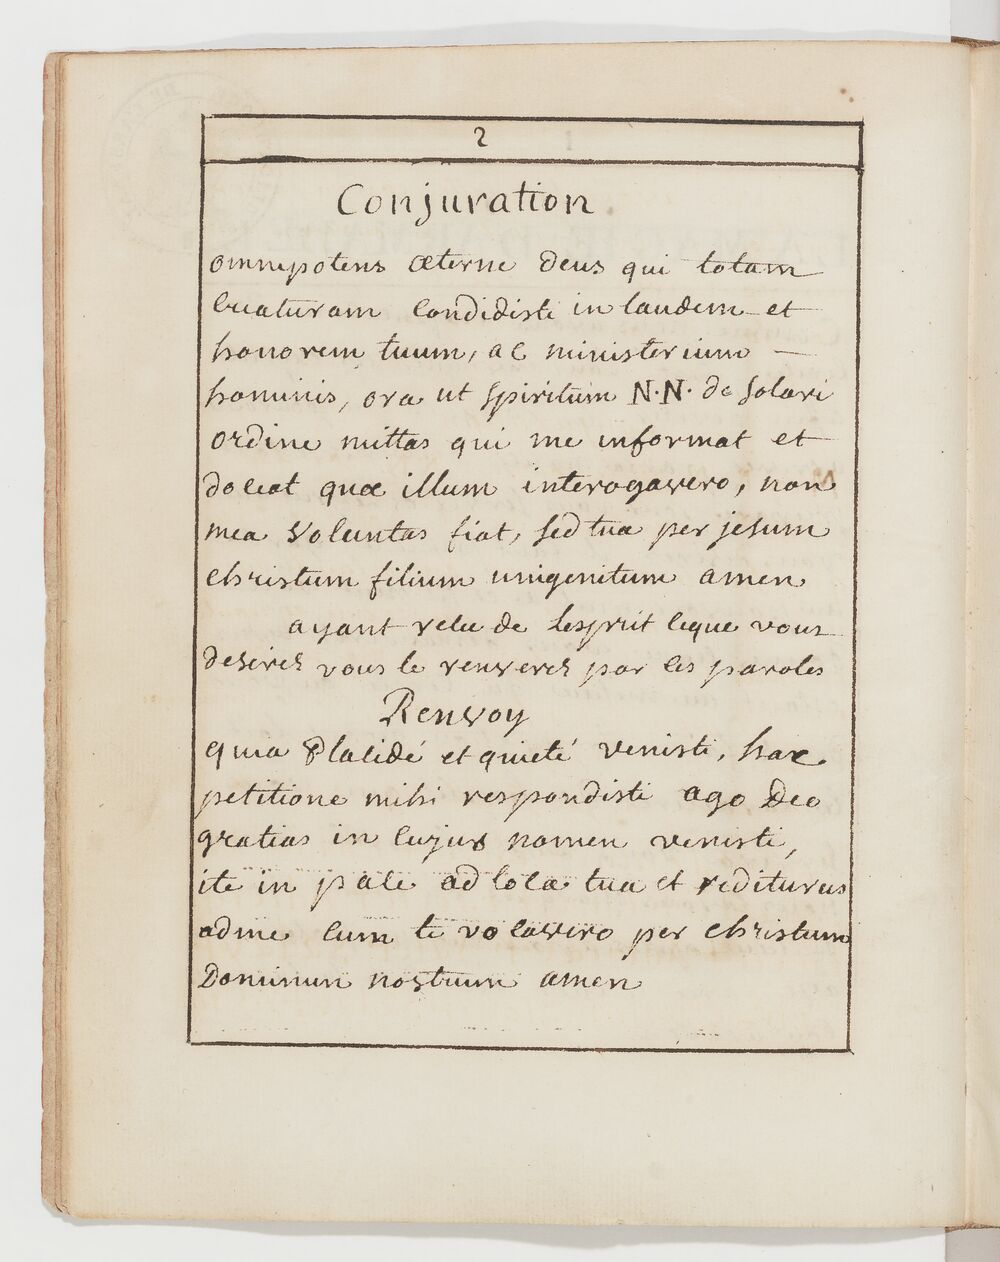 2
Conjuration
omnipotens œterne deus qui totam
creaturam condidisti in laudem et
honorem tuum, ac ministerium —
hominis, ora ut spiritum N.N. de solari
ordine mittas qui me informat et
doceat quœ illum interogavero, non
mea voluntas fiat, sed tua per jesum
christum filium unigenitum amen
ayant recu de Lesprit ceque vous
desirez vous le renverez par les paroles
Renvoy
quia Placidé et quieté venisti, hac
petitione mihi respondisti ago Deo
gratias in cujus nomen venisti,
ite in pace ad loca tua et rediturus
adme cum te vocavero per christum
Dominum nostrum amen